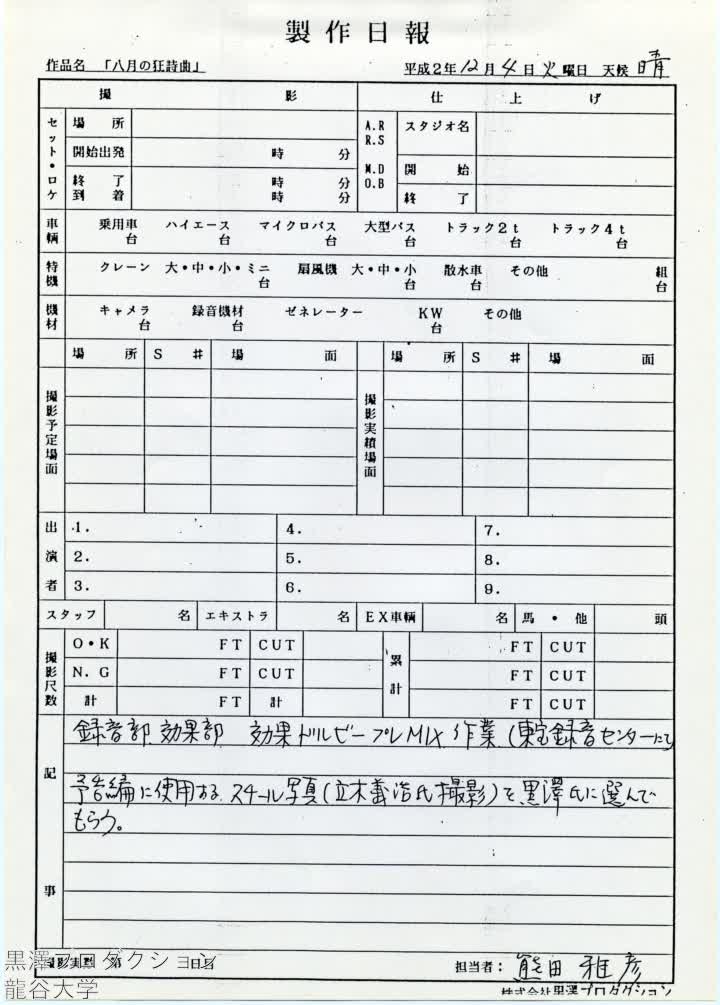 製作日報
作品名 「八月の狂詩曲」 平成2年12月4日火曜日 天候 晴
撮 影 仕 上 げ
セット・ロケ 場 所 A.R R.S M.D O.B スタジオ名
開始出発 時 分 開 始
終 了 時 分
到 着 時 分 終 了
車輌 乗用車 台 ハイエース 台 マイクロバス 台 大型バス 台 トラック2t 台 トラック4t 台
特機 クレーン 大・中・小・ミニ 台 扇風機 大・中・小 台 散水車 台 その他 組 台
機材 キャメラ 台 録音機材 台 ゼネレーター KW 台 その他
場 所 S # 場 面 場 所 S # 場 面
撮影予定場面 撮影実績場面
出演者 1. 4. 7.
2. 5. 8.
3. 6. 9.
スタッフ 名 エキストラ 名 EX車輌 名 馬・他 頭
撮影尺数 O・K FT CUT 累計 FT CUT
N.G FT CUT FT CUT
計 FT 計 FT CUT
記事
録音部、効果部 効果ドルビープレMIX作業(東宝録音センターにて)
予告編に使用する、スチール写真(立木義浩氏撮影)を黒澤氏に選んで
もらう。
撮影実数 第 日目
担当者: 熊田雅彦
株式会社黒澤プロダクション
黒澤プロダクション
龍谷大学